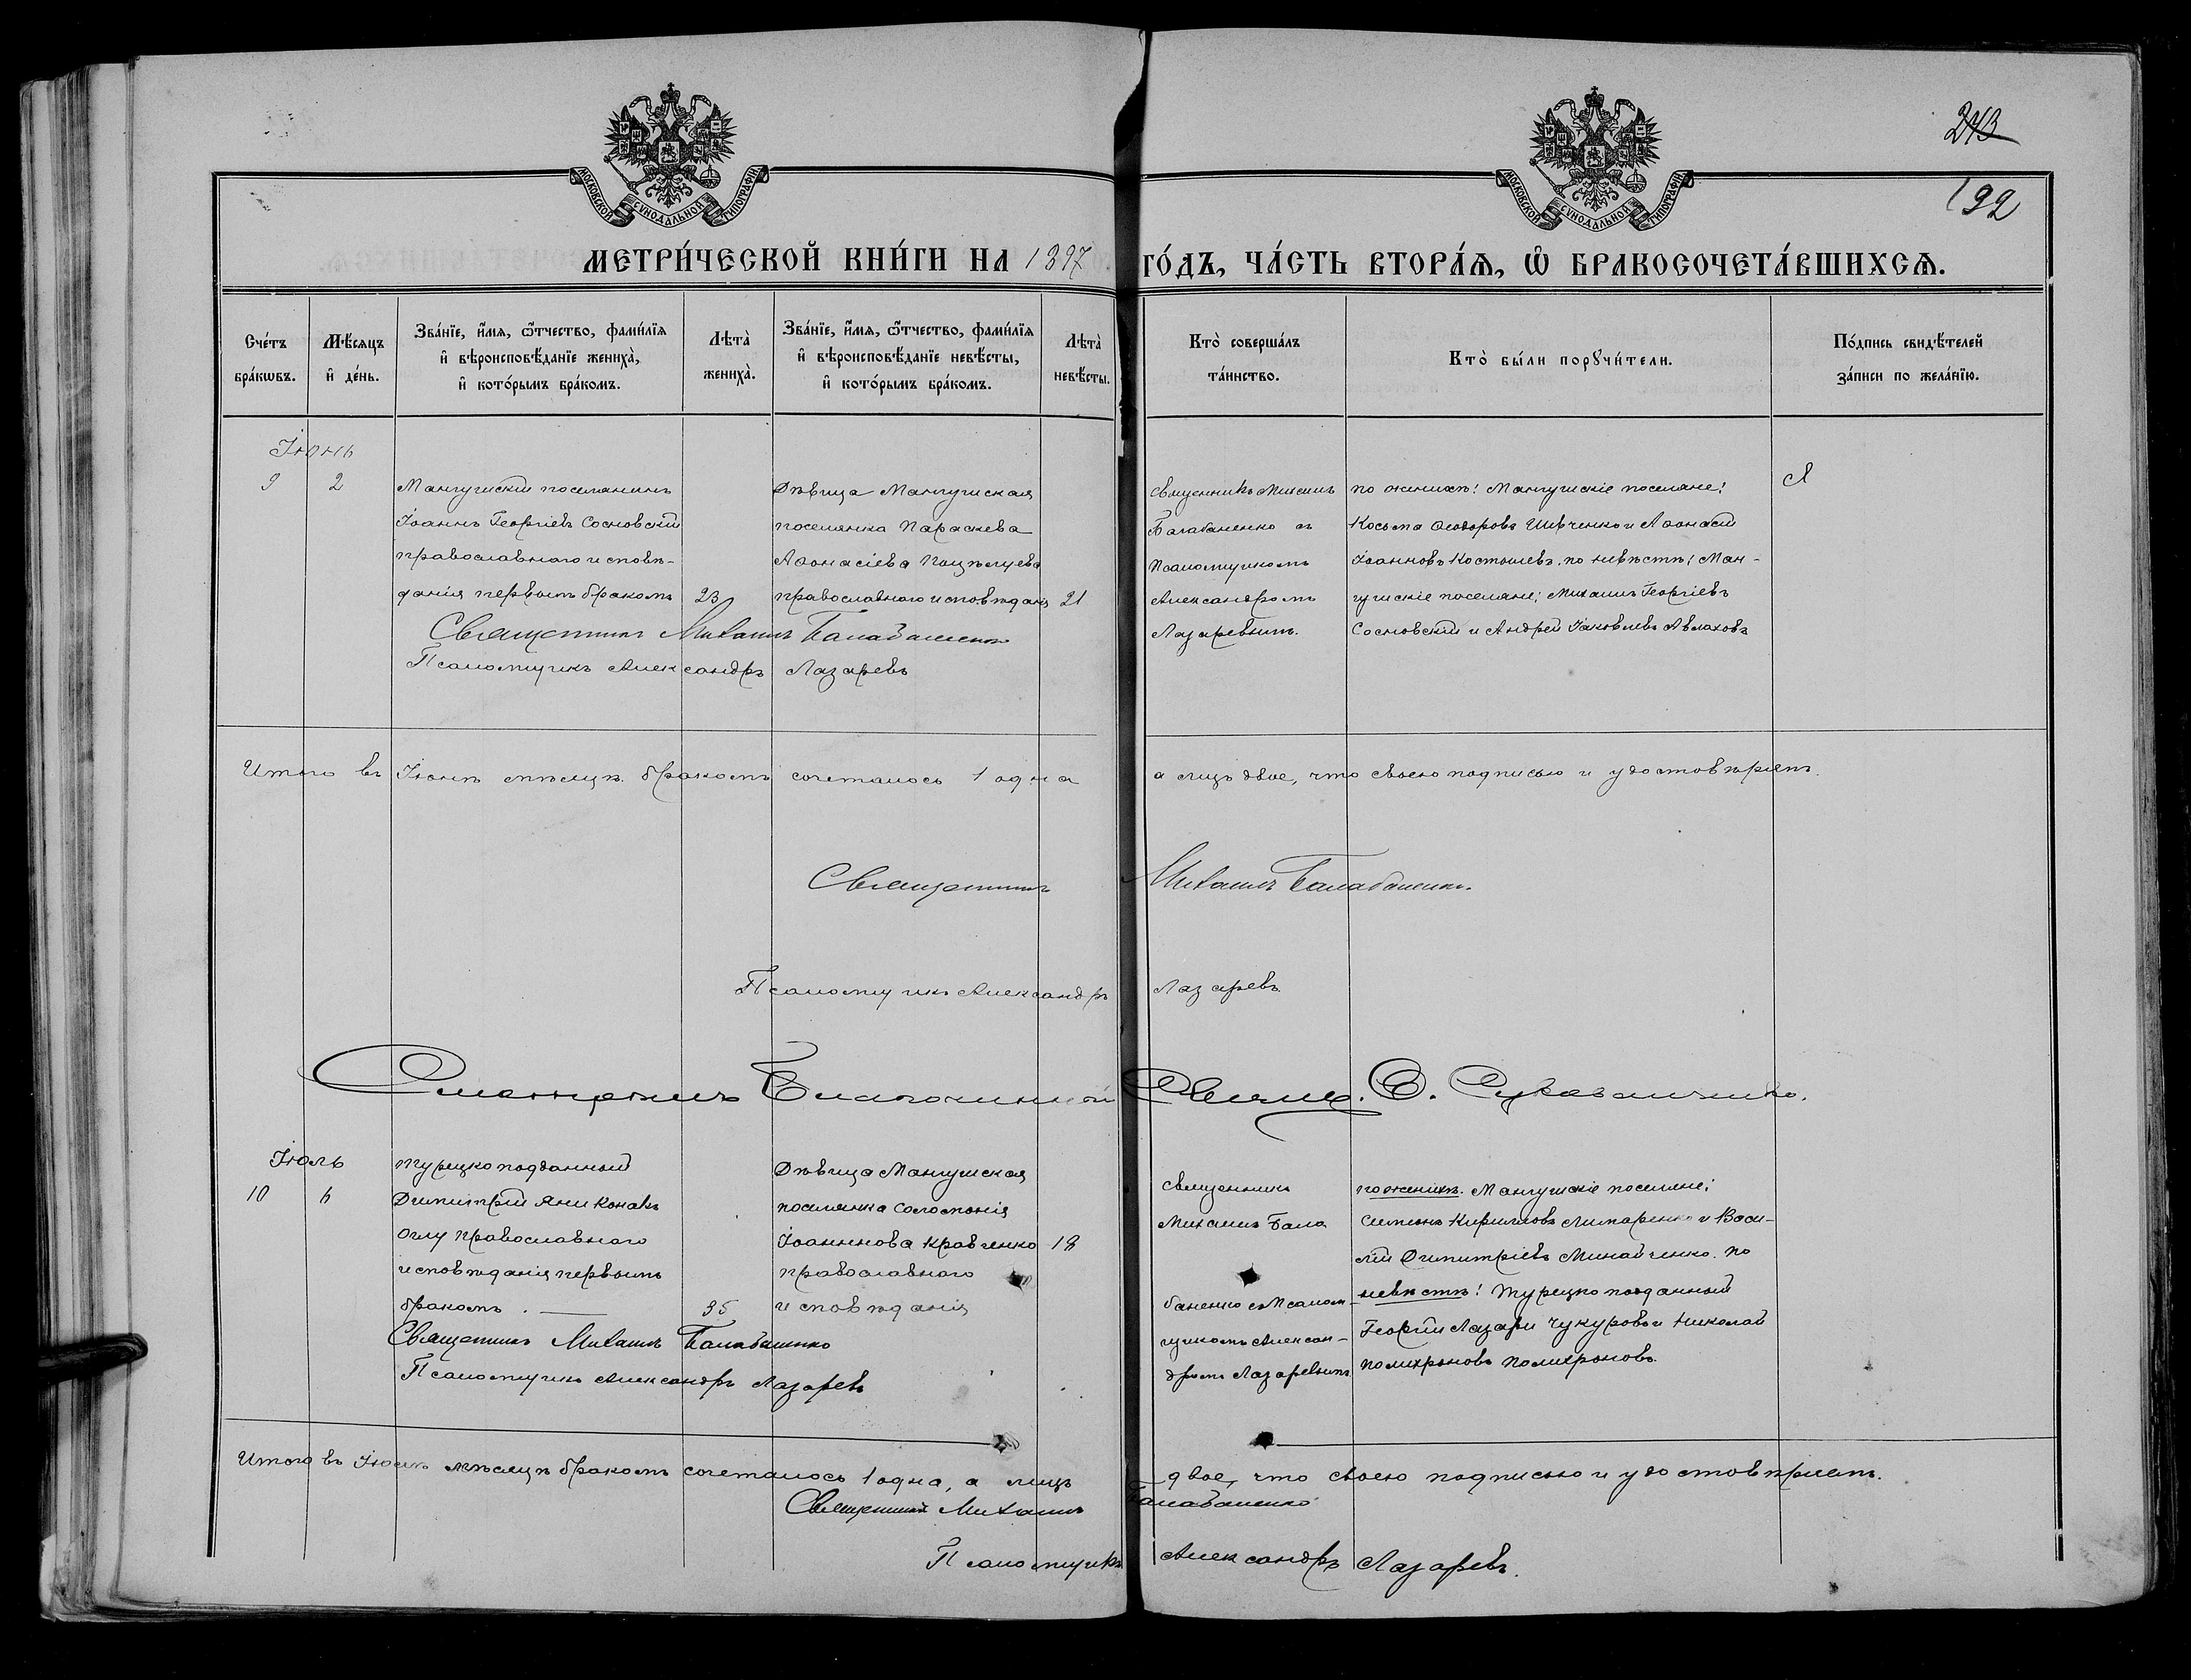 243
192
МОСКОВСКОЙ СѴНОДАЛЬНОЙ ТИПОГРАФІИ
МОСКОВСКОЙ СѴНОДАЛЬНОЙ ТИПОГРАФІИ
МЕТРИ́ЧЕСКОЙ КНИ́ГИ НА 1897 ГО́ДЪ, ЧА́СТЬ ВТОРА́Ѧ, Ѽ БРАКОСОЧЕТА́ВШИХСѦ.
Сче́тъ бра́кѡвъ.
Мѣ́сяцъ и҆ де́нь.
Зва́нїе, и҆́мя, ѻ҆́тчество, фами́лїя
и҆ вѣроисповѣ́данїе жениха̀,
и҆ кото́рымъ бра́комъ.
Лѣта̀ жениха̀.
Зва́нїе, и҆́мя, ѻ҆́тчество, фами́лїя
и҆ вѣроисповѣ́данїе невѣ́сты,
и҆ кото́рымъ бра́комъ.
Лѣта̀ невѣ́сты.
Кто̀ соверша́лъ та́инство.
Кто̀ бы́ли порꙋчи́тели.
По́дпись свидѣ́телей
за́писи по жела́нїю.
Іюнь
9 2
Мангушскій поселянинъ
Іоаннъ Георгіевъ Сосновскій
православнаго исповѣ-
данія первымъ бракомъ 23
Дѣвица Мангушская
поселянка Параскева
Аѳонасіева
православнаго исповѣданія 21
священникъ Михаилъ
Балабаненко съ
Псаломщикомъ
Александромъ
Лазаревымъ.
по женихѣ: Мангушскіе поселяне:
Косьма Ѳеодоровъ Шевченко и Аѳонасій
Іоанновъ Костылевъ, по невѣстѣ: Ман-
гушскіе поселяне: Михаилъ Георгіевъ
Сосновскій и Андрей Іаковлевъ Авлаховъ
Священникъ Михаилъ Балабаненко
Псаломщикъ Александръ Лазаревъ
Итого въ Іюнѣ мѣсяцѣ бракомъ сочеталось 1 одна а лицъ двое, что своею подписью и удостовѣряемъ.
Священникъ Михаилъ Балабаненко.
Псаломщикъ Александръ Лазаревъ.
Благочинный Свящ. С.
Іюль
10 6
Турецкоподданный
Димитрій Яни Конакъ
Оглу православнаго
исповѣданія первымъ
бракомъ. 35
Дѣвица Мангушская
поселянка Соломонія
Іоаннова Кравченко 18
православнаго
исповѣданія
священникъ
Михаилъ Бала
баненко съ Псалом-
щикомъ Алексан-
дромъ Лазаревымъ
по женихѣ. Мангушскіе поселяне:
Симеонъ Кирилловъ Литаренко и Васи-
лій Димитріевъ Минайченко. по
невѣстѣ: Турецко подданный
Георгій Лазари Чукуровъ и Николай
Полихроновъ Полихроновъ.
Священникъ Михаилъ Балабаненко
Псаломщикъ Александръ Лазаревъ
Итого въ Іюлѣ мѣсяцѣ бракомъ сочеталось 1 одна, а лицъ двое, что своею подписью и удостовѣряемъ.
Священникъ Михаилъ Балабаненко
Псаломщикъ Александръ Лазаревъ.